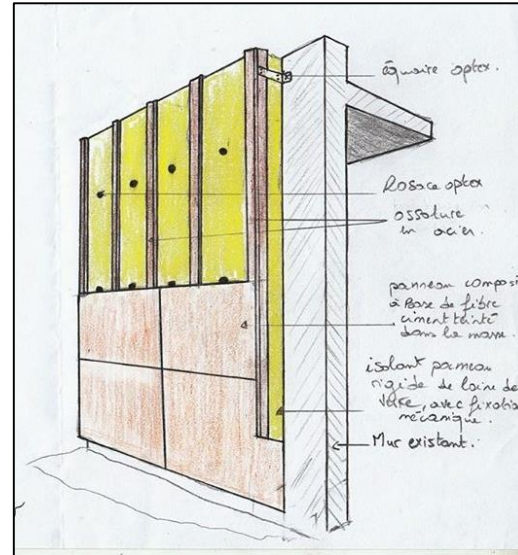 équaire optex.
Rosace optex
ossature
en acier.
panneau composi
à Base de fibre
ciment teinté
dans la masse.
isolant panneau
rigide de laine de
verre, avec fixatio
mécanique.
Mur existant.